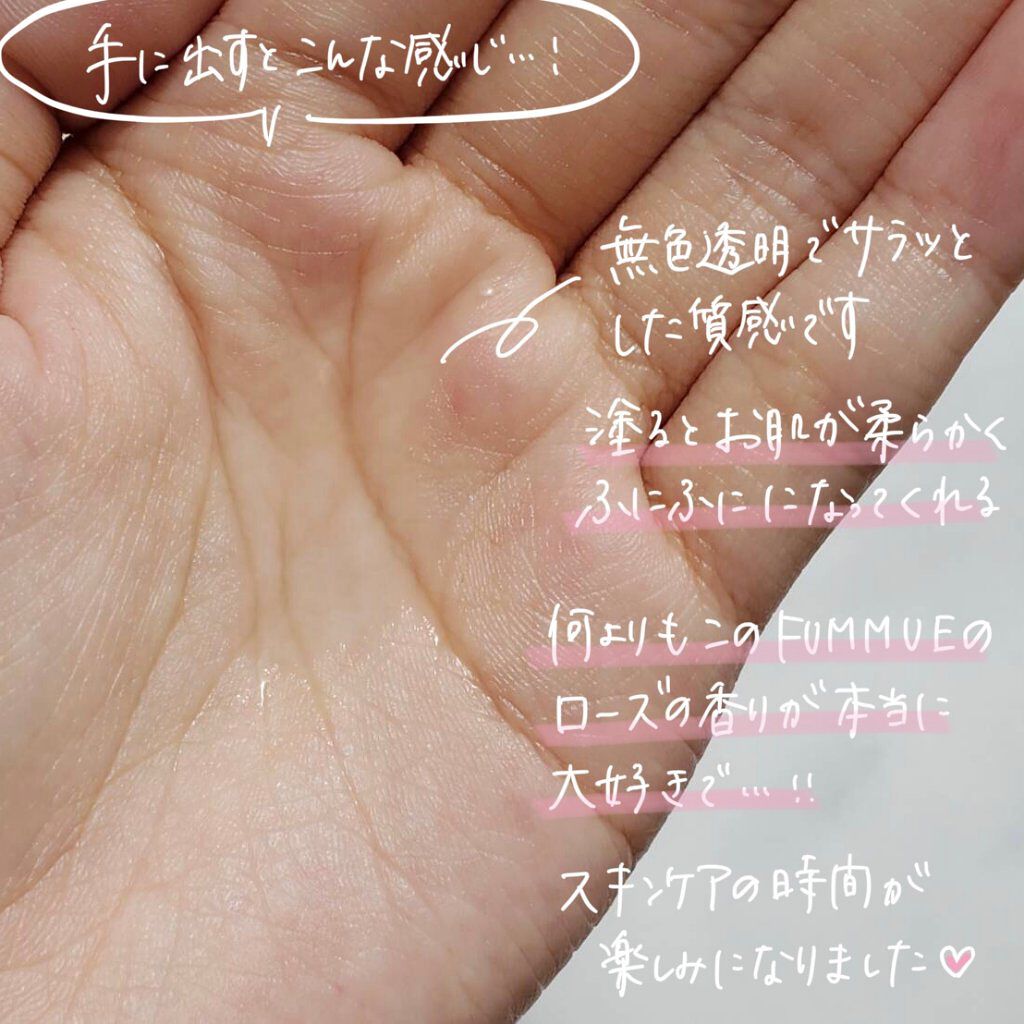 手に出すとこんな感じ…！
無色透明でサラッと
した質感です
塗るとお肌が柔らかく
ふにふにになってくれる
何よりもこのFUMMUEの
ローズの香りが本当に
大好きで…!!
スキンケアの時間が
楽しみになりました♡